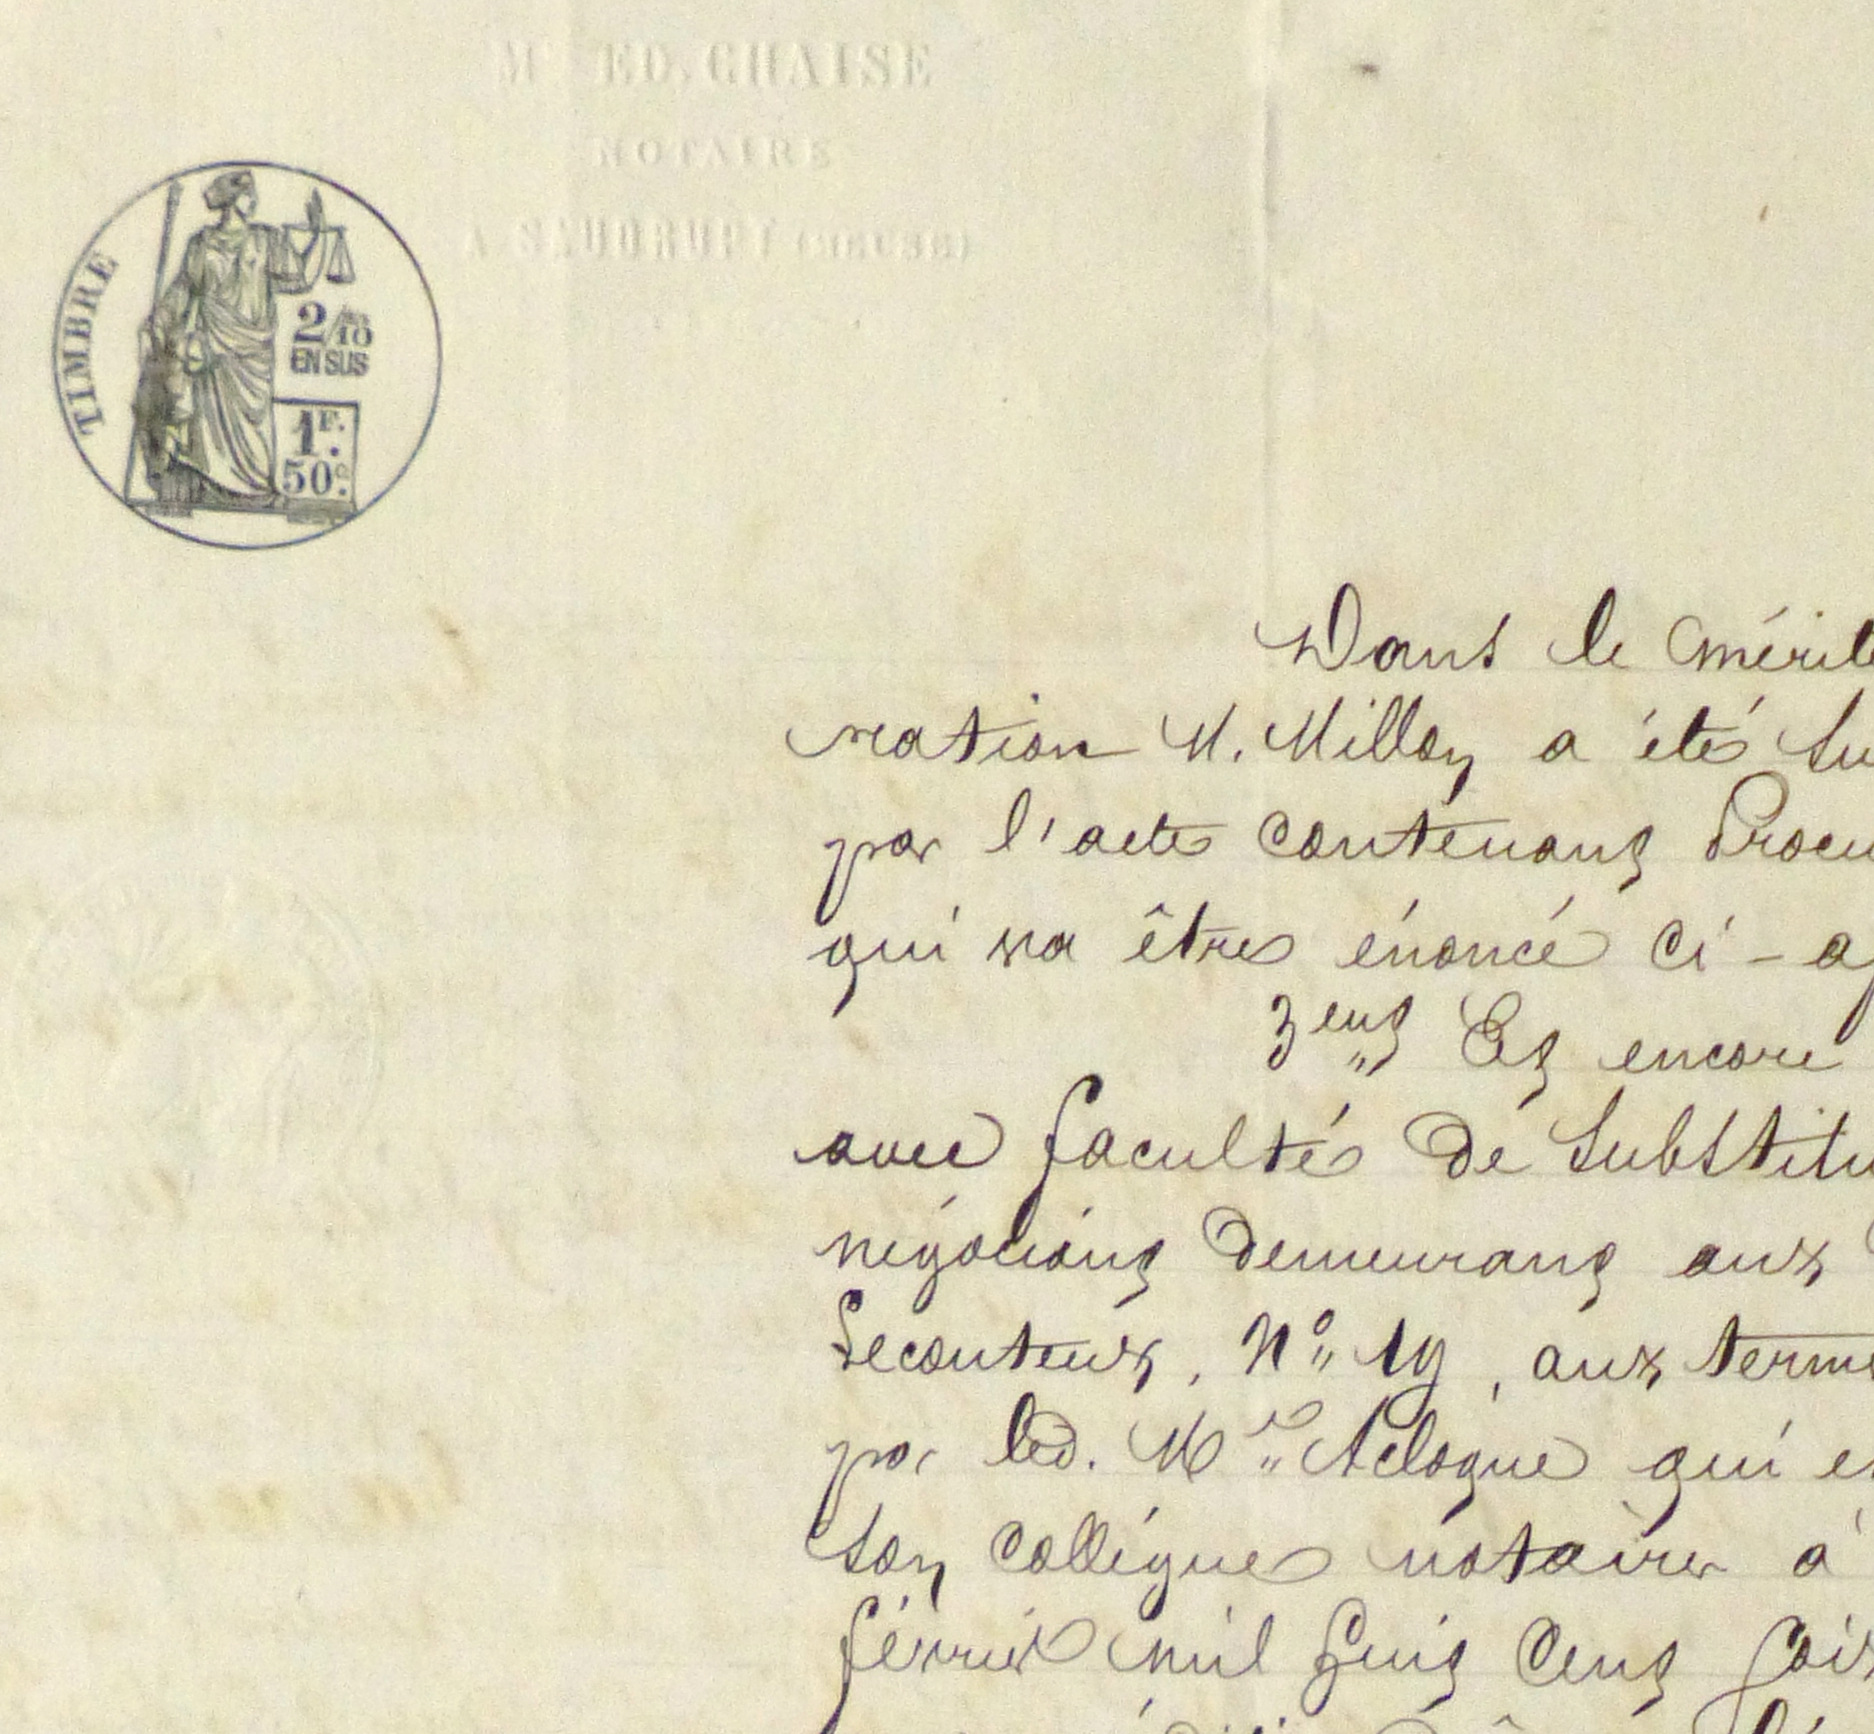 Me ED. CHAISE
NOTAIRE
A SEUDRUPT (MEUSE)
TIMBRE
2/10
EN SUS
1F.
50c.
Dans le mérite
ration M. Millon a été su
par l'acte contenant Procu
qui va être énoncé ci-ap
3ent Et encore
avec faculté de substitu
négociant demeurant aux
Lecouteux, No 19, aux terme
par led. Me Aclogue qui e
son collègue notaires à
février mil huit cent soix